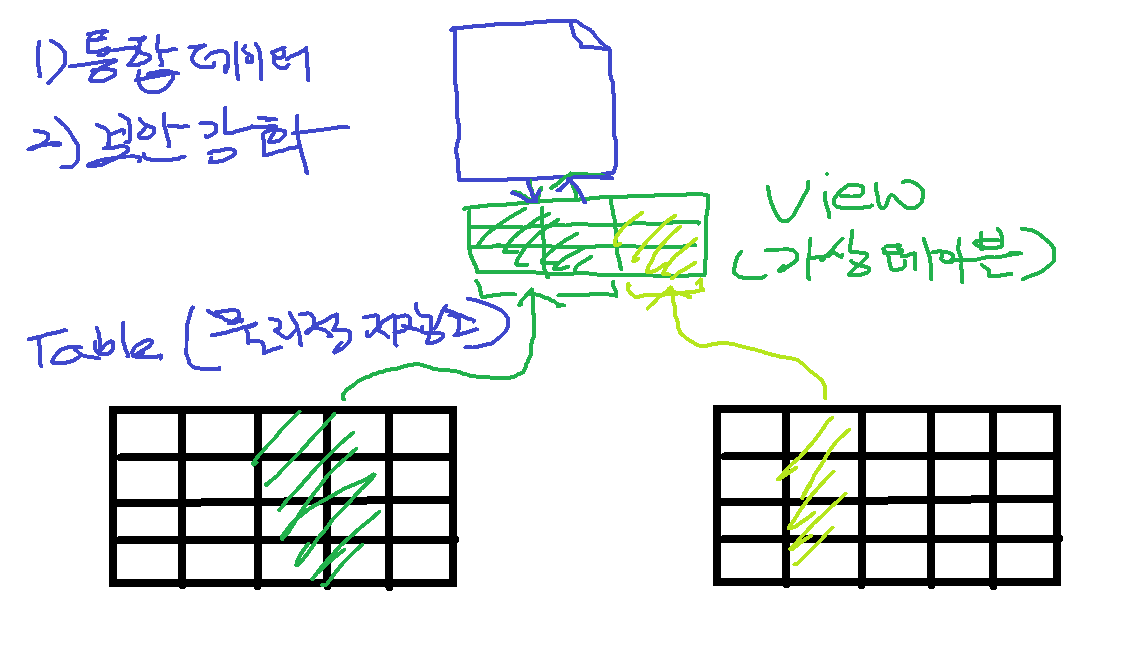 1) 통합 데이터
2) 보안 강화
View
(가상 테이블)
Table (물리적 저장소)